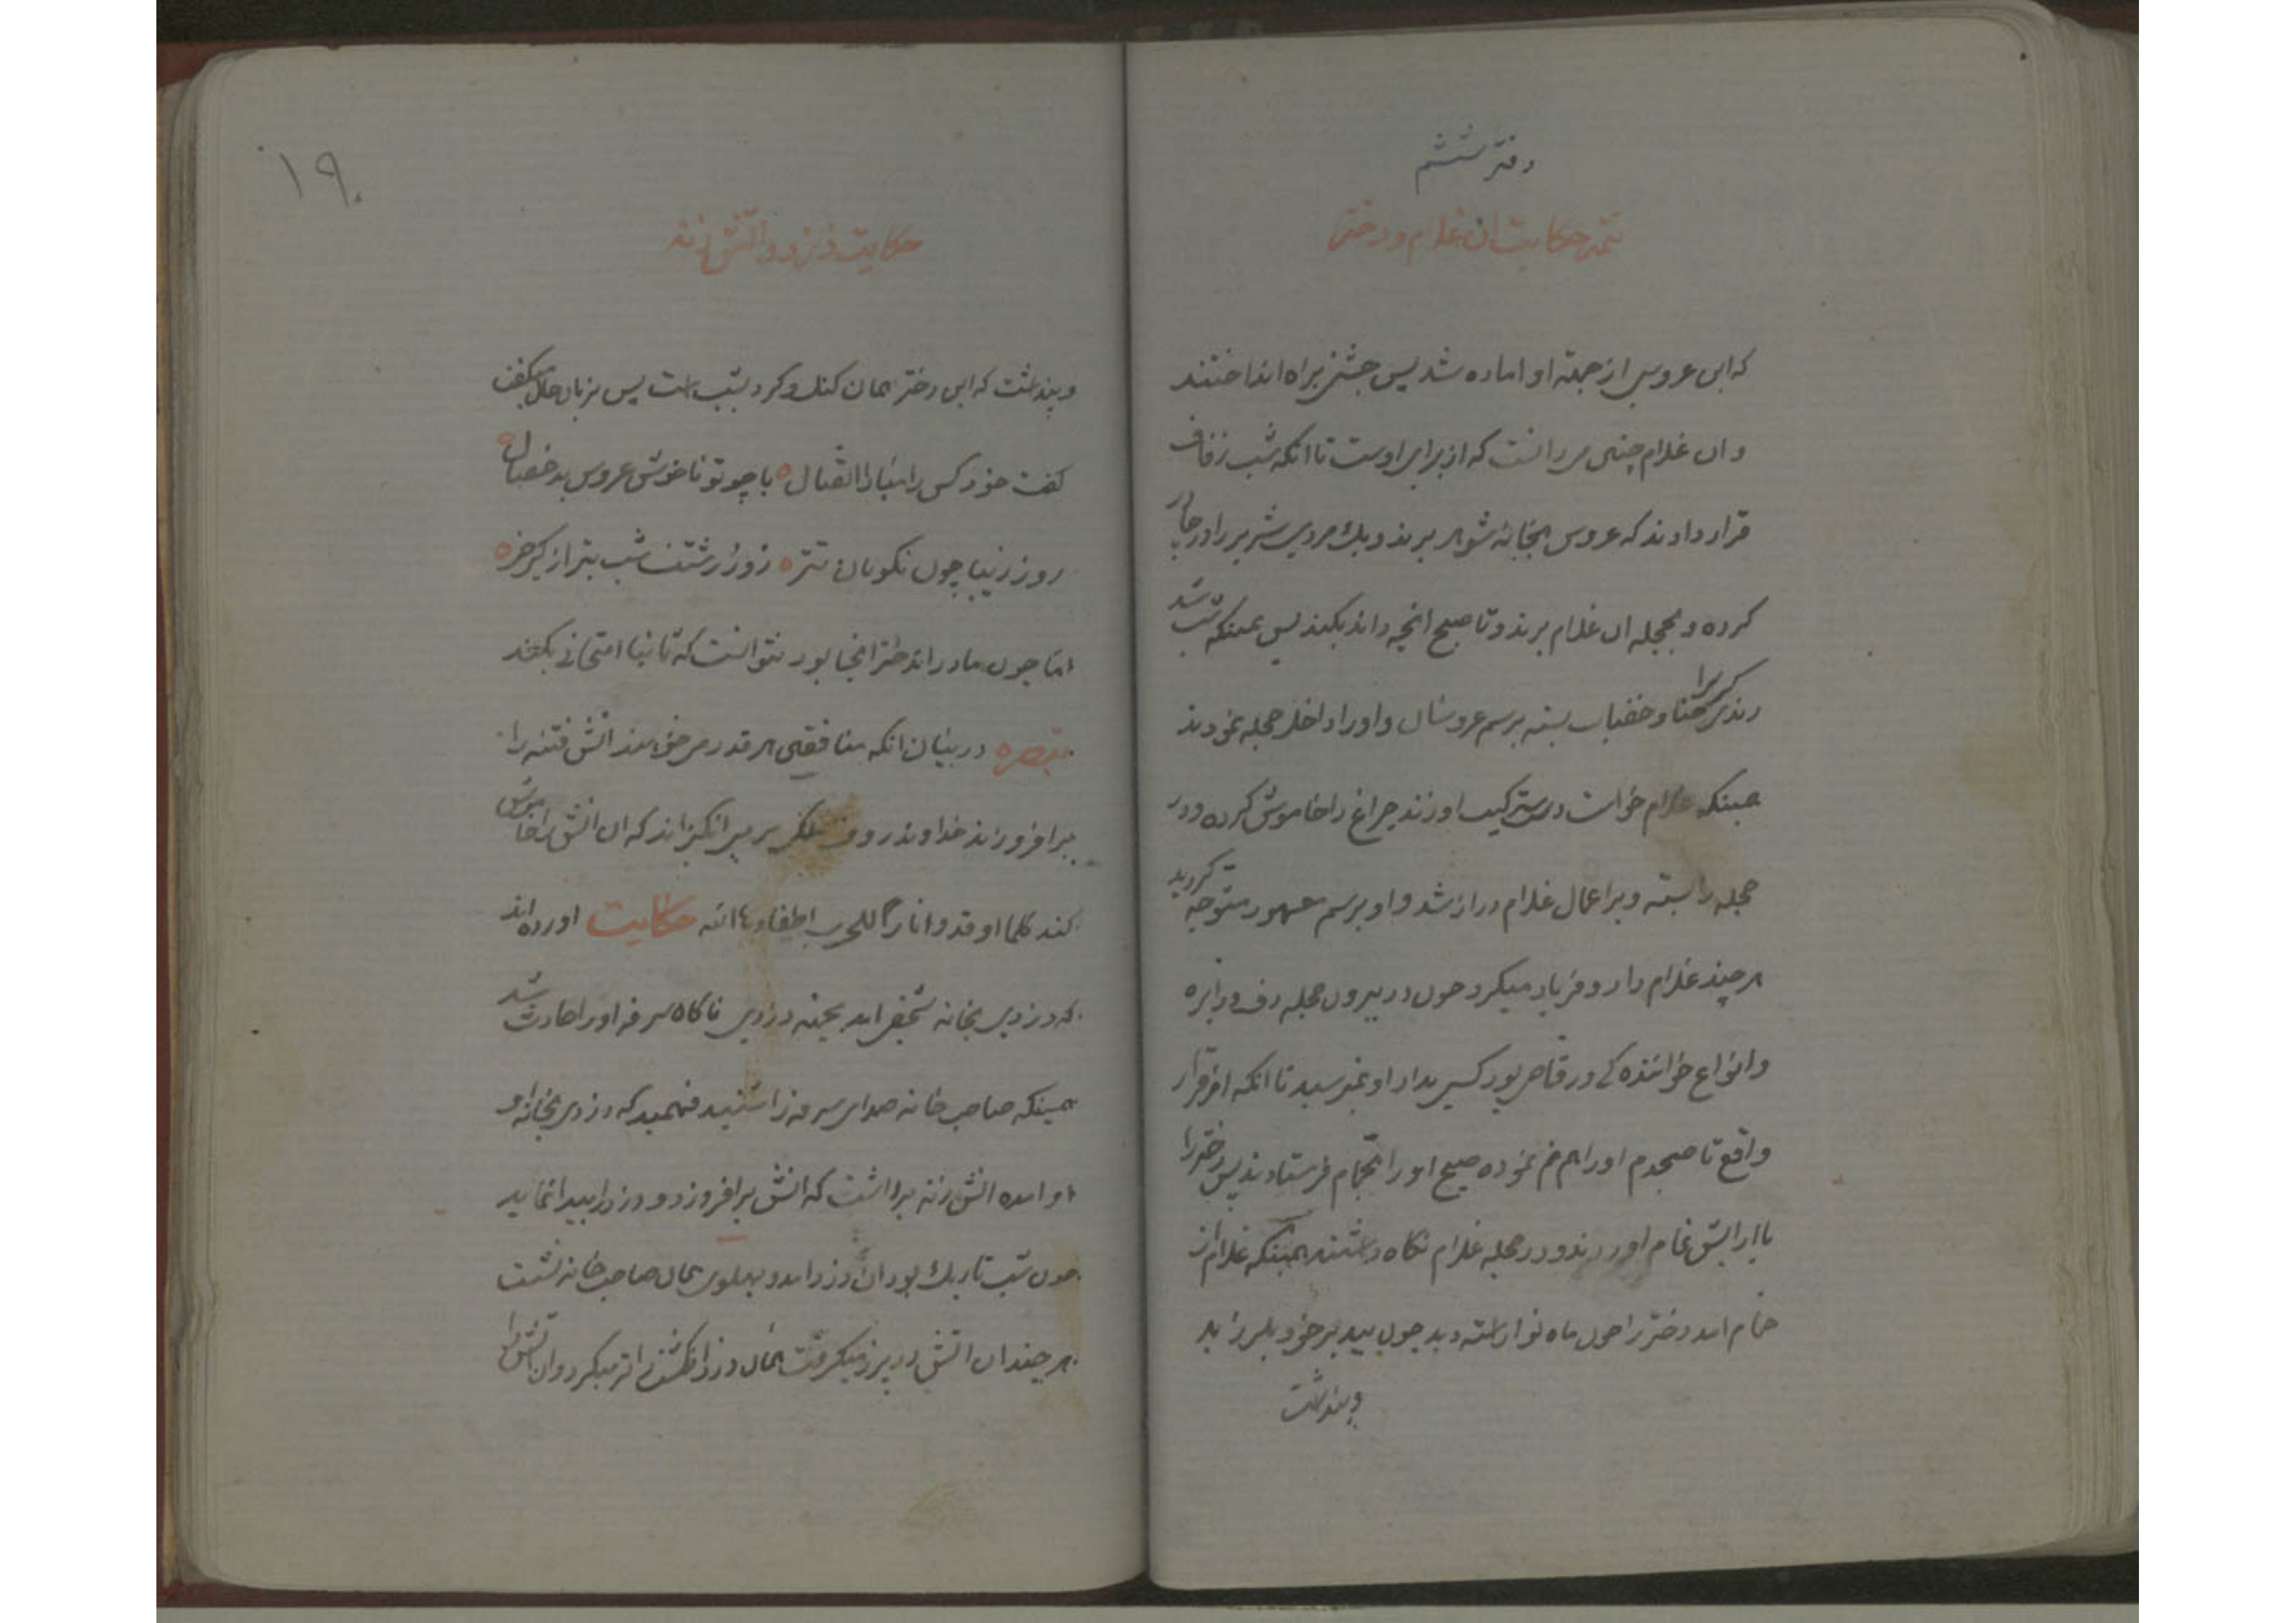 دفتر ششم
تتمه حکایت ان غلام و دختر
که این عروس از جهة او اماده شد پس جشنی براه انداختند
و ان غلام چنین میدانست که از برای اوست تا انکه شب زفاف
قرار دادند که عروس بخانه شوهر برند و یک مردی شریر را در
کرده و بحجله ان غلام برند و تا صبح انچه داند بکند پس همینکه شب شد
رندی را حنا و خضاب بسته برسم عروسان و او را داخل حجله نمودند
همینکه غلام خواست دستر کیب اورند چراغ را خاموش کرده و در
حجله را بسته و بر اعمال غلام دراز شد و او برسم معهود متوجه گردید
هر چند غلام داد و فریاد میکرد چون در بیرون حجله دف و دایره
و انواع خوانندگی و رقاصی بود کسی بداد او نمیرسید تا انکه از قرار
واقع تا صبحدم او را هم خم نموده صبح او را بحمام فرستادند پس دختر را
با ارایش تمام اوردند و در حجله غلام نگاه داشتند همینکه غلام از
حمام امد دختر را چون ماه نو اراسته دید چون بید بر خود بلرزاید
و پنداشت
۱۹۰
حکایت دزد و اتش زنه
و پنداشت که این دختر همان کنک و کرد بشب است پس بزبان حال میگفت
گفت خود کس را مباد اتصال با چو تو ناخوش عروس بد خصال
روز زیبا چون نکویان تتر زورُ زشتت شب بتر از کیر خر
اما چون مادر ان دختر انجا بود نتوانست که ثانیا امتحانی بکند
تبصره در بیان انکه منافقین هر قدر میخواهند اتش فتنه را
بر افروزاند خداوند رووف ملکی بر میانکیزاند که ان اتش را خاموش
کند کلما اوقدوا نارا للحرب اطفاوها الله حکایت اورده اند
که دزدی بخانه شخصی امد بجهته دزدی ناکاه سرفه او را حادث شد
همینکه صاحب خانه صدای سرفه را شنید فهمید که دزدی بخانه او
او امده اتش زنه برداشت که اتش بر افروزد و دزد را پیدا نماید
چون شب تاریک بود ان دزد امد و بپهلوی همان صاحب خانه نشست
هر چند ان اتش در پرز میکرفت همان دزد انکشت تر میکرد و ان اتش را